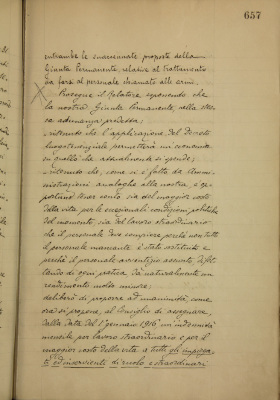 657
entrambe le suaccennate proposte della
Giunta Permanente, relative al trattamento
da farsi al personale chiamato alle armi.
Prosegue il Relatore esponendo che
la nostra Giunta Permanente, nella stes-
sa adunanza predetta;
ritenuto che l'applicazione del Decreto
luogotenenziale permetterà un'economia
su quella che attualmente si spende;
ritenuto che, come si è fatto da Ammi-
nistrazioni analoghe alla nostra, è op-
portuno tener conto, sia del maggior costo
della vita per le eccezionali condizioni politiche
del momento, sia del lavoro straordinario
che il personale deve compiere, perchè non tutto
il personale mancante è stato sostituito e
perchè il personale avventizio assunto, difet-
tando di ogni pratica dà naturalmente un
rendimento molto minore;
deliberò di proporre ad unanimità, come
ora si propone, al Consiglio di assegnare,
dalla data del 1° gennaio 1916 un'indennità
mensile per lavoro straordinario e per il
maggior costo della vita a tutti gli impiega-
ti ed inservienti di ruolo e straordinari